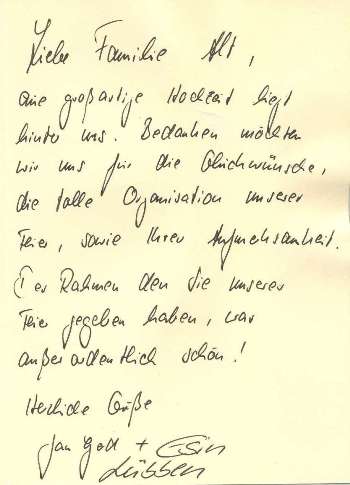 Liebe Familie Alt,
eine großartige Hochzeit liegt
hinter uns. Bedanken möchten
wir uns für die Glückwünsche,
die tolle Organisation unserer
Feier, sowie Ihrer Aufmerksamkeit.
Der Rahmen den Sie unserer
Feier gegeben haben, war
außerordentlich schön!
Herzliche Grüße
Jan +
Lübben